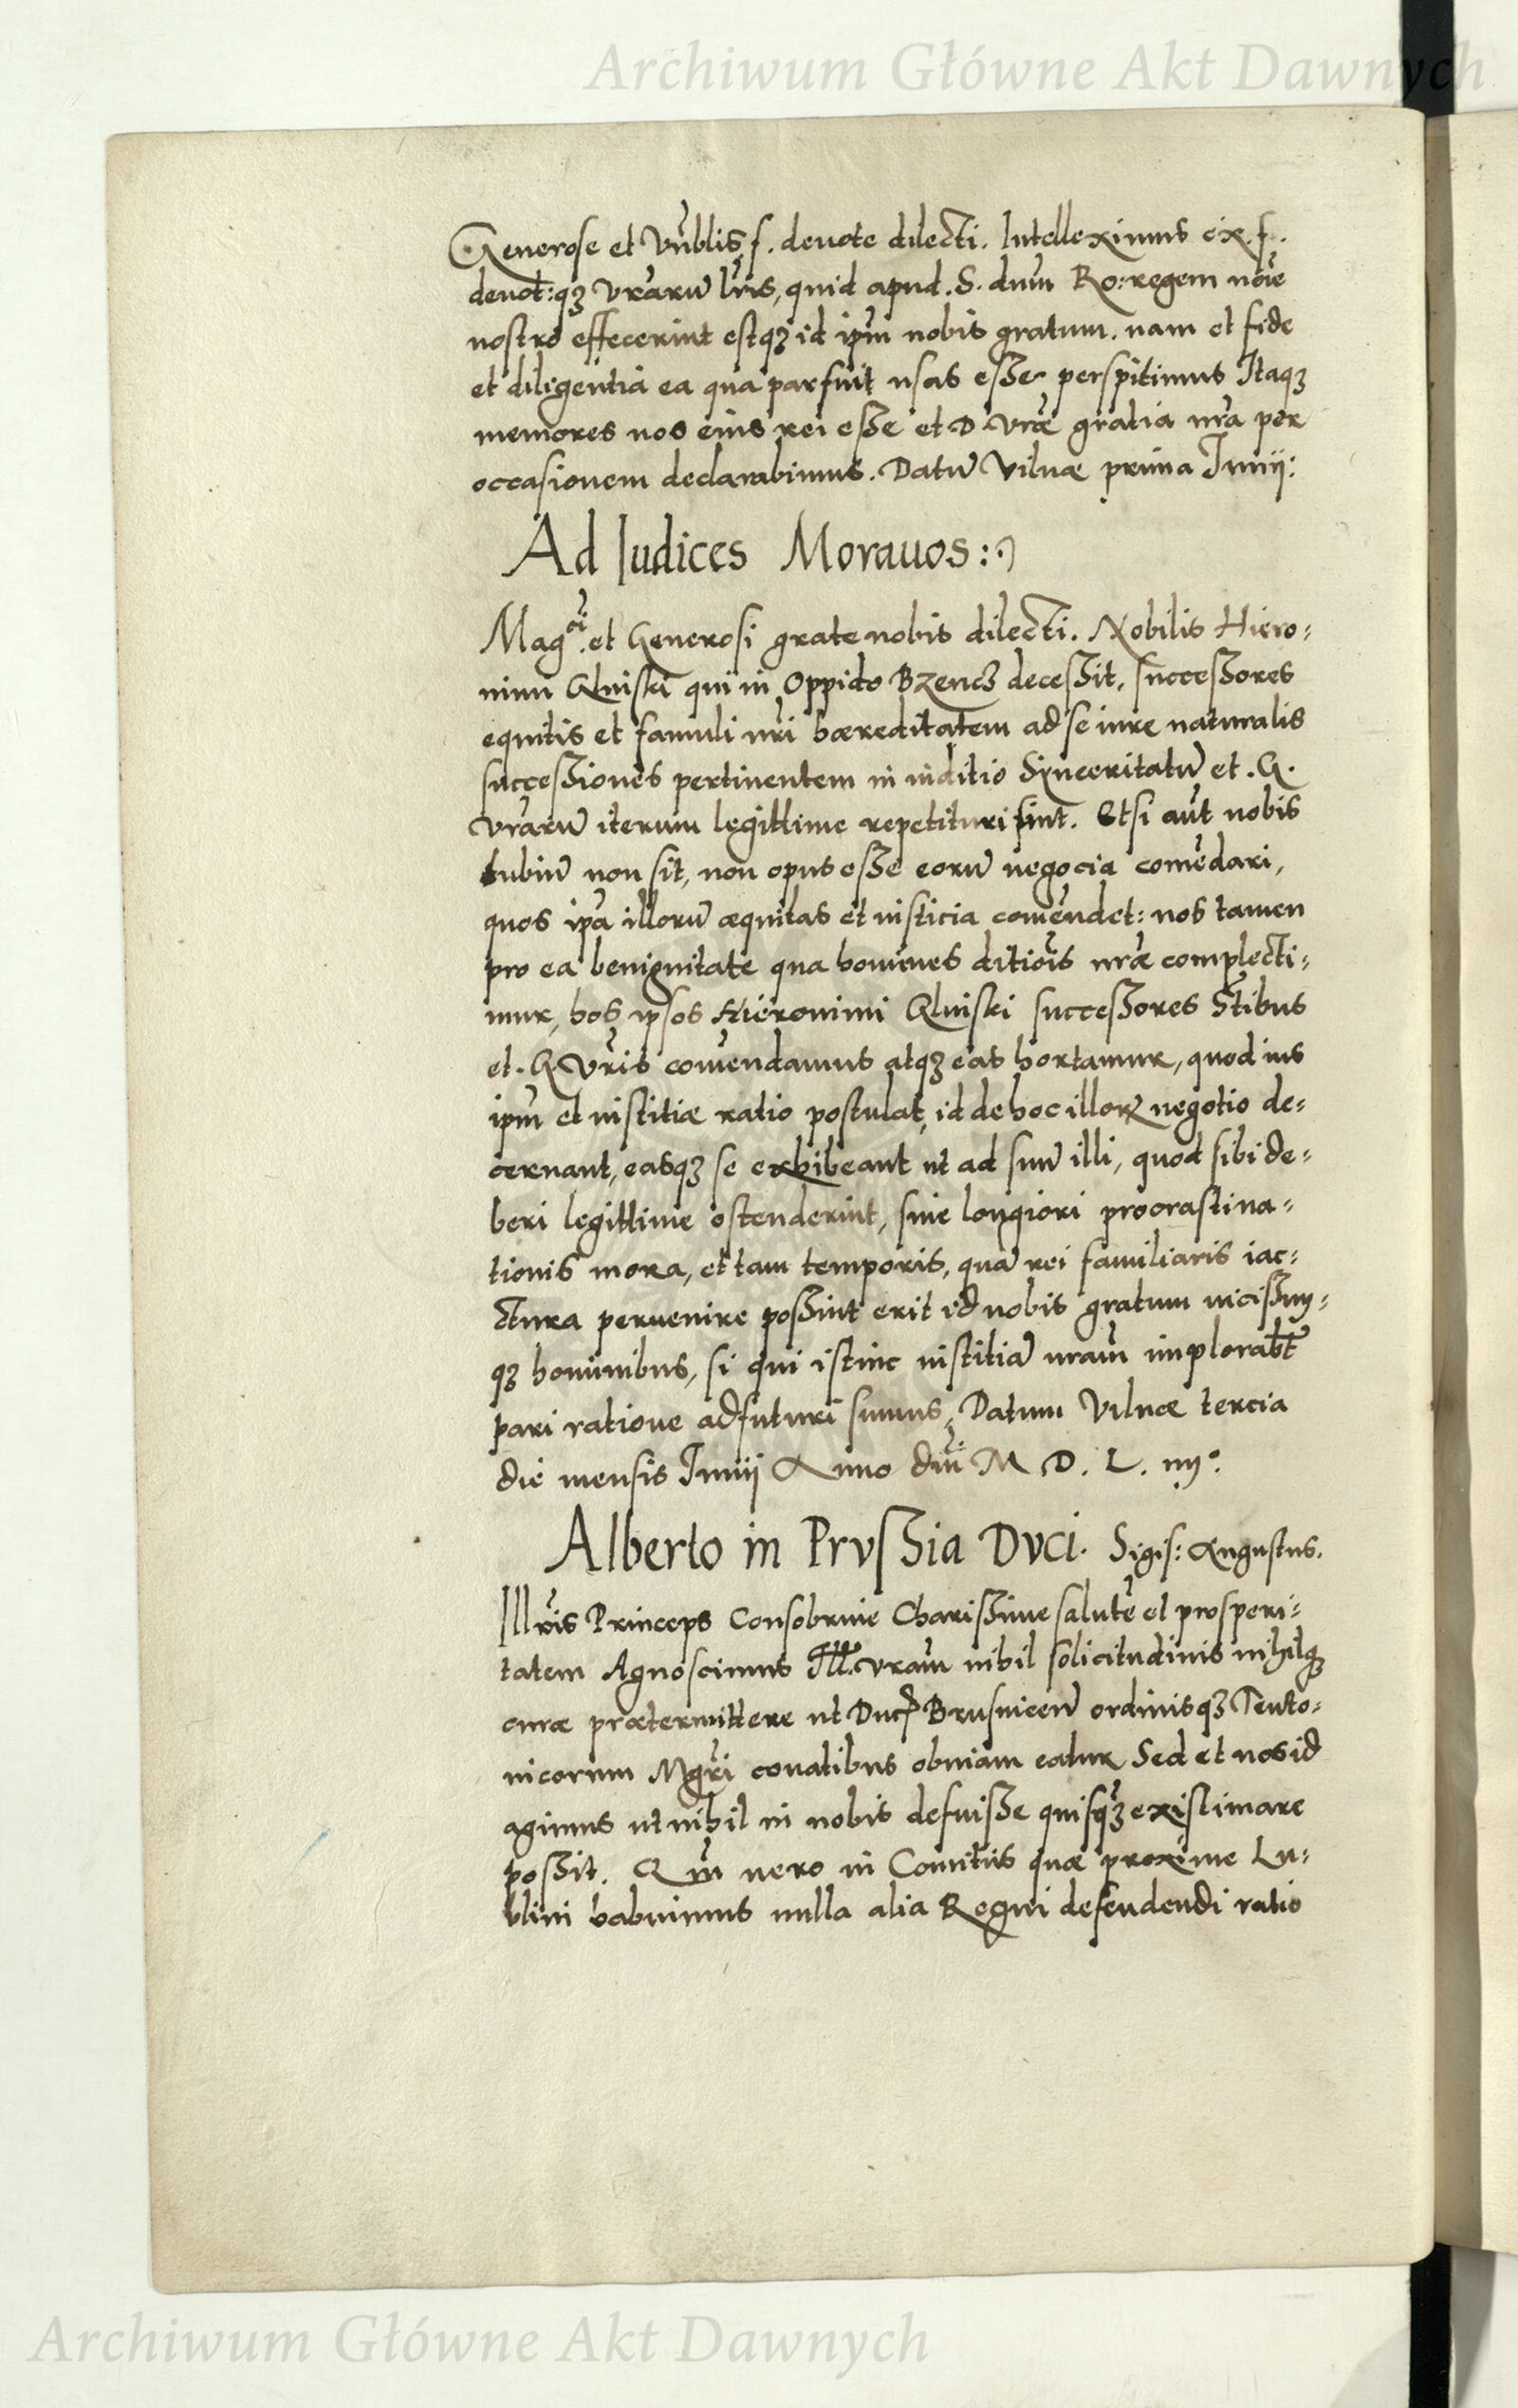 Archiwum Główne Akt Dawnych
Generose et Vn̄blis, f. deuote dilecti. Intelleximus ex. f.
deuot:qꝫ Vrārū lr̄is, quid apud. S. dnm̄ Ro: regem noīe
nostro effecerint estqꝫ id ipm̄ nobis gratum. nam et fide
et diligentia ea qua par fuit usas esse perspitimus Itaqꝫ
memores nos eius rei esse et D. Vrāe gratia nrā per
occasionem declarabimus. Datū Vilnæ prima Junij:
Ad Iudices Morauos:
Mag.ci et Generosi grate nobis dilecti. Nobilis Hiero:
nimi Gluiski qui in Oppido Bzencz decessit, successores
equitis et famuli nrī hæreditatem ad se iure naturalis
successiones pertinentem in iuditio Synceritatū et. G.
Vrārū iterum legittime repetituri sint. Etsi aūt nobis
dubiū non sit, non opus esse eorū negocia comēdari,
quos ipā illorū æquitas et iusticia comēndet: nos tamen
pro ea benignitate qua homines ditiōis nrāe complecti:
mur, hos ipsos Hieronimi Gluiski successores S̄tibus
et. G Vrīs comēndamus atqꝫ eas hortamur, quod ius
ipm̄ et iustitiæ ratio postulat, id de hoc illorꝝ negotio de:
cernant, easqꝫ se exhibeant ut ad suū illi, quod sibi de:
beri legittime ostenderint, sine longiori procrastina:
tionis mora, et tam temporis, quā rei familiaris iac:
ctura peruenire possint erit id nobis gratum uicissim:
qꝫ hominibus, si qui istinc iustitiā nrām implorabt̄
pari ratione adfuturi sumus, Datum Vilnæ tercia
die mensis Junij Anno dnī M D. L. iiijº.
Alberto in Prussia Dvci. Sigis: Augustus.
Illrīs Princeps Consobrine Charissime salutē et prosperi:
tatem Agnoscimus Ill. Vrām nihil solicitudinis nihilqꝫ
curæ prætermittere ut Ducꝭ Brusuicen̄ ordinisqꝫ Teuto:
nicorum Mgrī conatibus obuiam eatur Sed et nos id
agimus ut nihil in nobis defuisse quisqꝫ existimare
possit. Qm̄ uero in Comitiis quæ proxime Lu:
blini habuimus nulla alia Regni defendendi ratio
Archiwum Główne Akt Dawnych